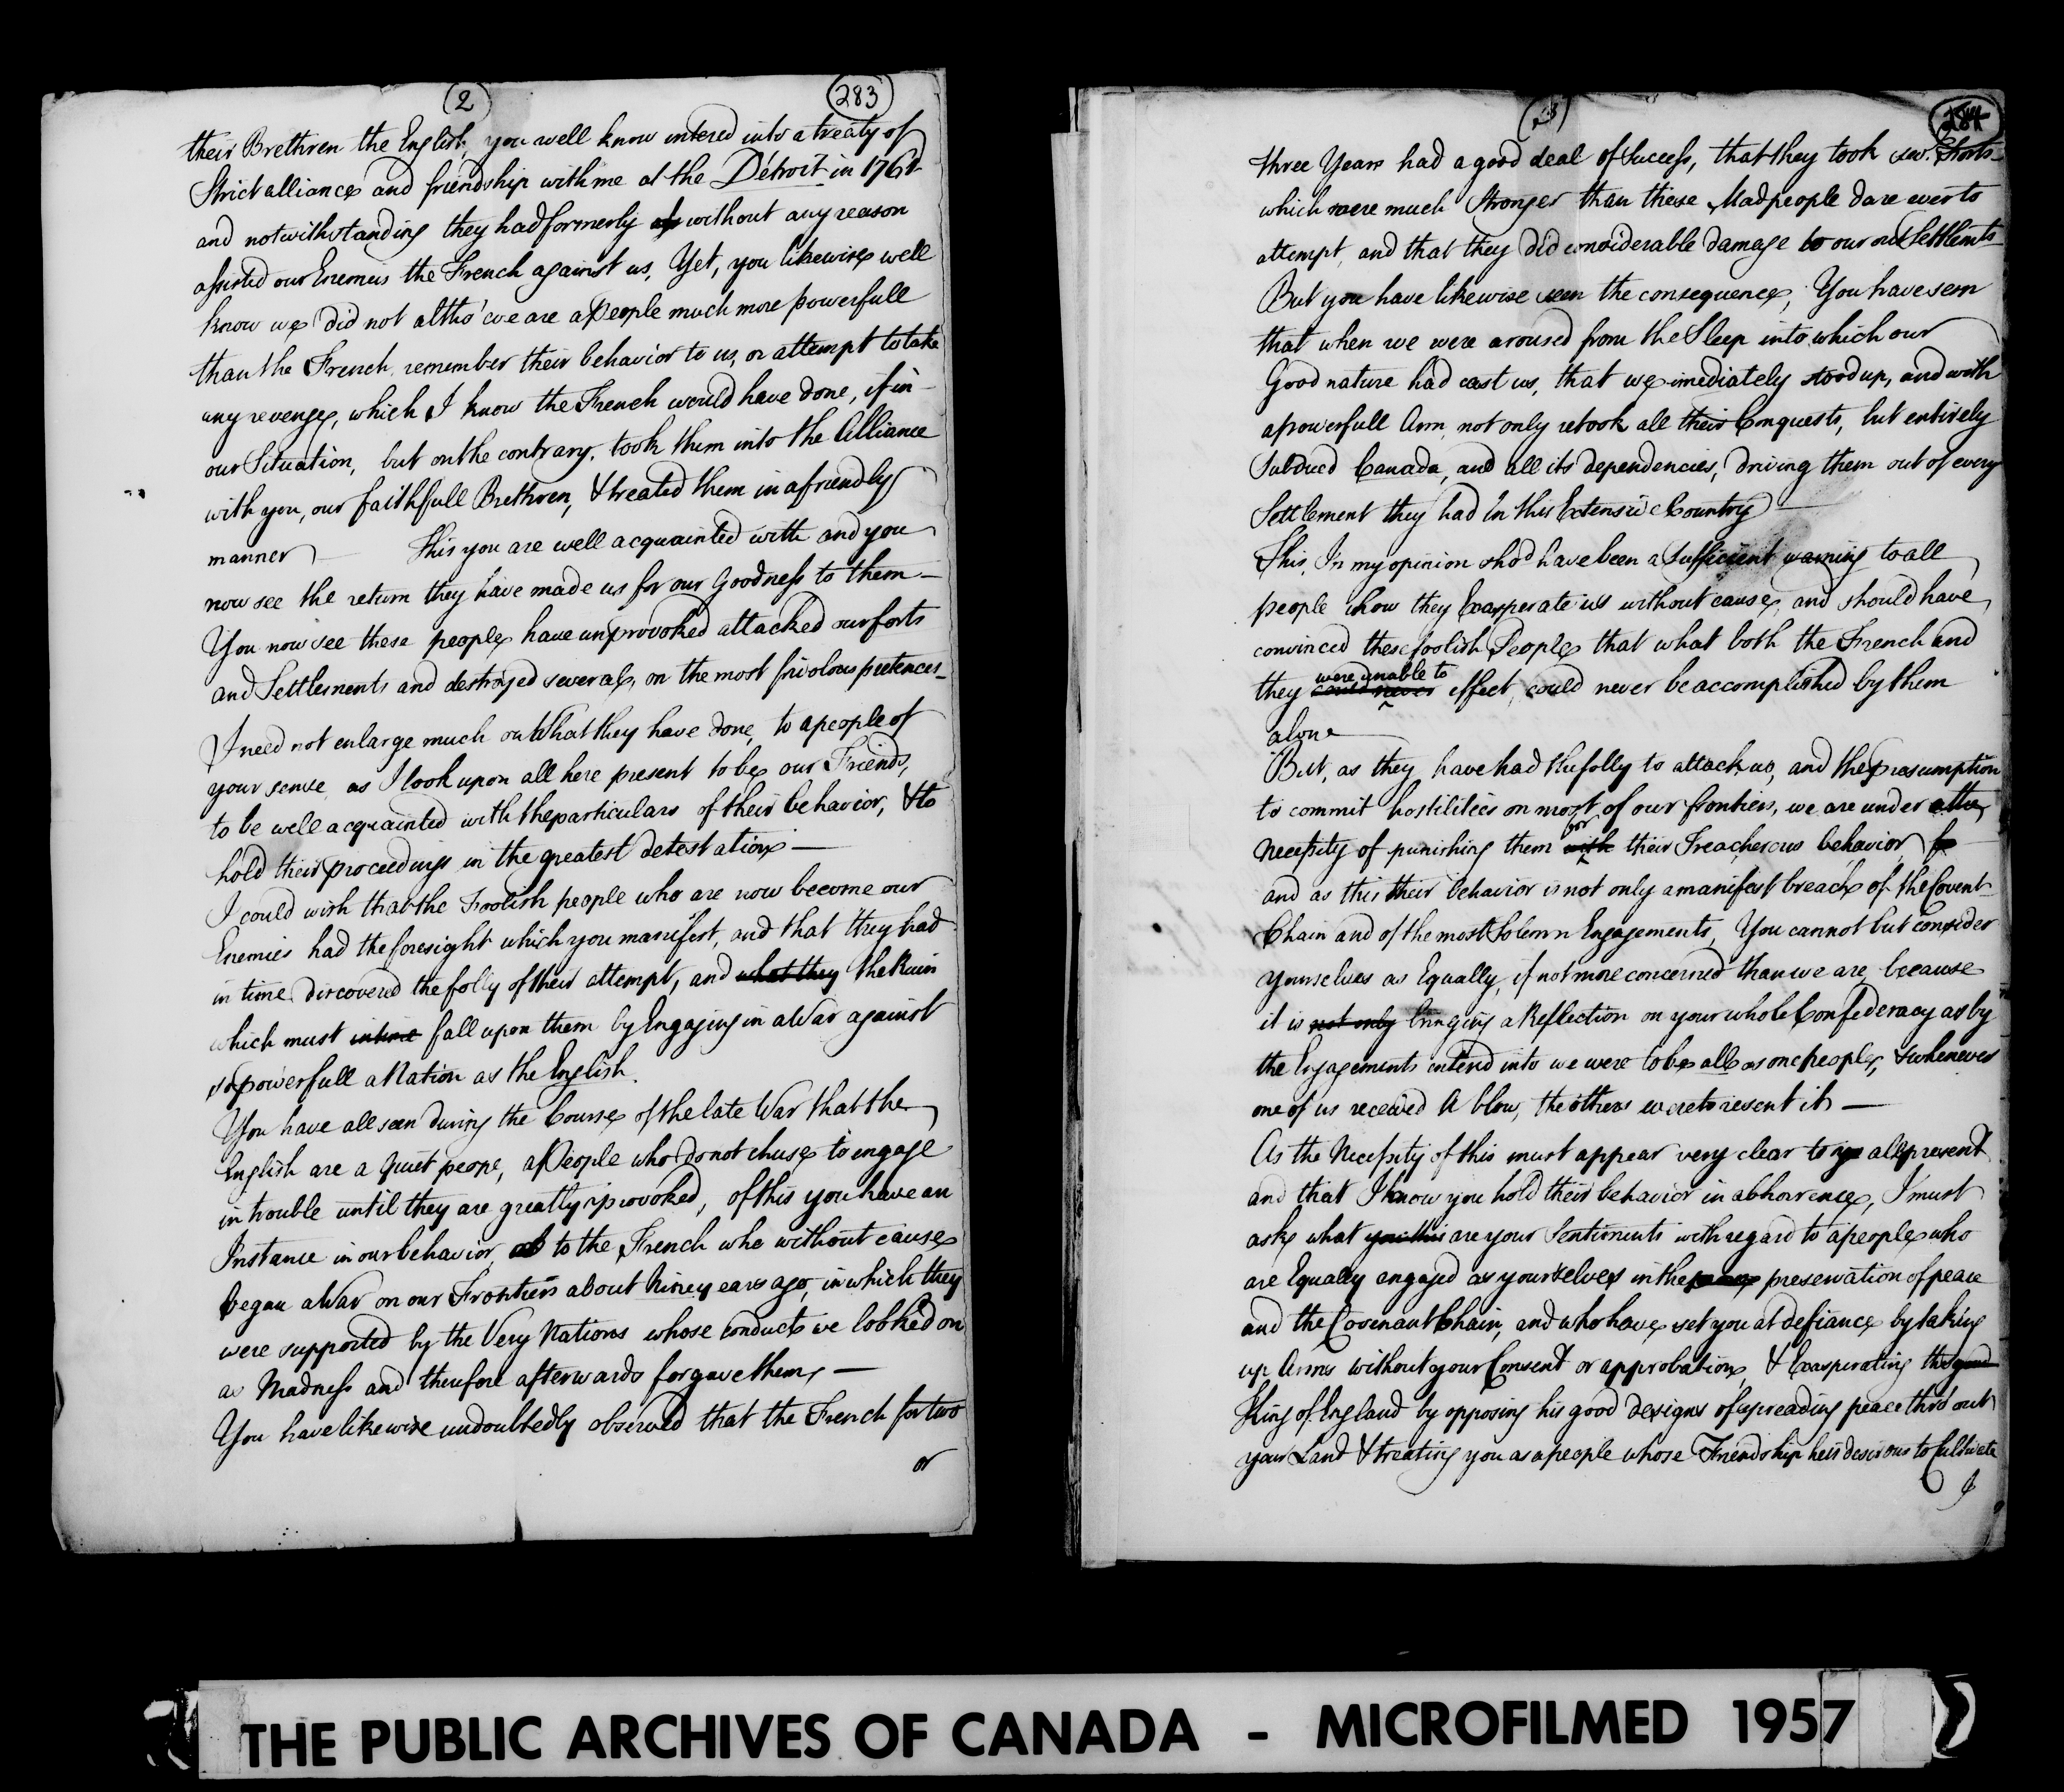 2
283
their Brethren the English, you well know entered into a treaty of
Strict alliance and friendship with me at the Détroit in 1761
and notwithstanding they had formerly without any reason
assisted our Enemies the French against us, Yet, you likewise well
know we did not altho' we are a People much more powerfull
than the French, remember their behavior to us, or attempt to take
any revenge, which I know the French would have done, if in
our Situation, but on the contrary, took them into the Alliance
with you, our faithfull Brethren, & treated them in a friendly
manner — This you are well acquainted with and you
now see the return they have made us for our Goodness to them —
You now see these people have unprovoked attacked our forts
and Settlements and destroyed several, on the most frivolous pretences —
I need not enlarge much on What they have done, to a people of
your sense, as I look upon all here present to be our Friends,
to be well acquainted with the particulars of their behavior, & to
hold their proceedings in the greatest detestation —
I could wish that the Foolish people who are now become our
Enemies had the foresight which you manifest, and that they had
in time discovered the folly of their attempt, and what they the Ruin
which must in time fall upon them by Engaging in a War against
so powerfull a Nation as the English.
You have all seen during the Course of the late War that the
English are a Quiet peope, a People who do not chuse to engage
in trouble until they are greatly provoked, of this you have an
Instance in our behavior to the French who without cause
began a War on our Frontiers about Nine years ago, in which they
were supported by the Very Nations whose conduct we looked on
as Madness and therefore afterwards forgave them, —
You have likewise undoubtedly observed that the French for two
or
3
284
three Years had a good deal of Success, that they took sev. Forts
which were much Stronger than these Mad people dare ever to
attempt, and that they did considerable damage to our out Settlemts
But you have likewise seen the consequence, You have seen
that when we were aroused from the Sleep into which our
Good nature had cast us, that we imediately stood up, and with
a powerfull Arm, not only retook all their Conquests, but entirely
Subdued Canada, and all its dependencies, driving them out of every
Settlement they had In this Extensive Country —
This, In my opinion sho'd have been a Sufficient warning to all
people how they Exasperate us without cause, and should have
convinced these foolish People that what both the French and
were unable to
they could never effect, could never be accomplished by them
alone —
But, as they have had the folly to attack us, and the presumption
to commit hostilities on most of our frontiers, we are under the
for
Necessity of punishing them with their Treacherous behavior
and as this their behavior is not only a manifest breach of the Covent
Chain and of the most Solemn Engagements, You cannot but consider
yourselves as Equally, if not more concerned than we are, because
it is not only bringing a Reflection on your whole Confederacy as by
the Engagements entered into we were to be all as one people, & whenever
one of us received A blow, the others were to resent it —
As the Necessity of this must appear very clear to all present
and that I know you hold their behavior in abhorrence, I must
ask what are your Sentiments with regard to a people who
are Equally engaged as yourselves in the preservation of peace
and the Covenant Chain, and who have set you at defiance by taking
up Arms without your Consent or approbation, & Exasperating the good
King of England by opposing his good designs of spreading peace thro'out
your Land & treating you as a people whose Friendship he is desirous to Cultivate
I
THE PUBLIC ARCHIVES OF CANADA - MICROFILMED 1957